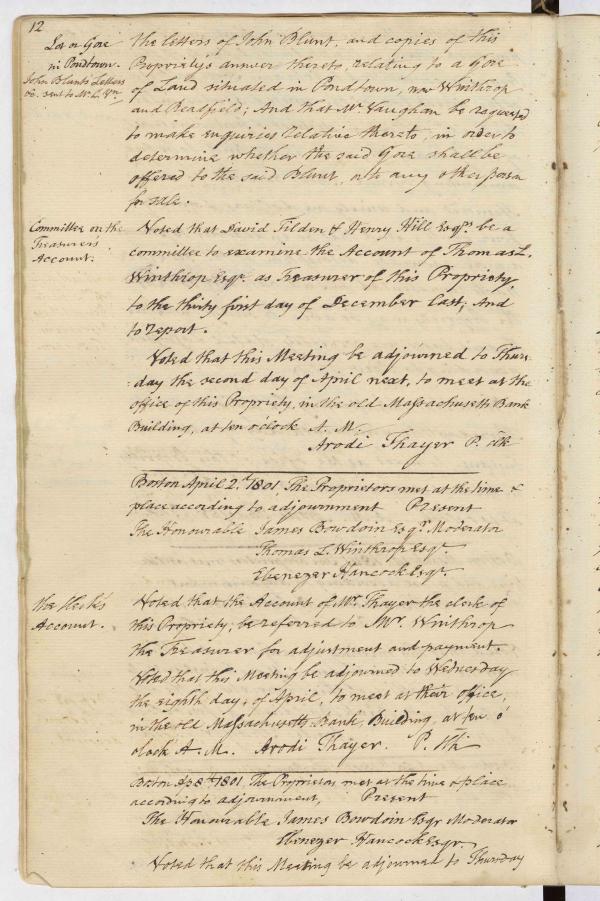 12
Lot or Gore
in Pondtown.
John Blunts Letters
&c. sent to Mr. C. Vn
the letters of John Blunt, and copies of this
Propriety's answer thereto, relating to a Gore
of Land situated in Pondtown, now Winthrop
and Readfield; And that Mr. Vaughan be requested
to make enquiries relative thereto, in order to
determine whether the said Gore shall be
offered to the said Blunt, or to any other person
for sale.
Committee on the
Treasurers
Account.
Voted that David Tilden & Henry Hill Esqrs. be a
committee to examine the Account of Thomas L.
Winthrop Esqr. as Treasurer of this Propriety,
to the thirty first day of December last; And
to report.
Voted that this Meeting be adjourned to Thurs-
-day the second day of April next, to meet at the
office of this Propriety, in the old Massachusetts Bank
Building, at ten o'clock A. M.
Arodi Thayer P. Clk
Boston April 2d. 1801, The Proprietors met at the time &
place according to adjournment Present
The Honourable James Bowdoin Esqr. Moderator
Thomas L. Winthrop Esqr.
Ebenezer Hancock Esqr.
The Clerk's
Account.
Voted that the Account of Mr. Thayer the clerk of
this Propriety, be referred to Mr. Winthrop
the Treasurer for adjustment and payment.
Voted that this Meeting be adjourned to Wednesday
the eighth day, of April, to meet at their office,
in the old Massachusetts Bank Building, at ten o'
clock A. M. Arodi Thayer. P. Clk
Boston Ap 8th. 1801, The Proprietors met at the time & place
according to adjournment, Present
The Honourable James Bowdoin Esqr Moderator
Ebenezer Hancock Esqr.
Voted that this Meeting be adjourned to Thursday